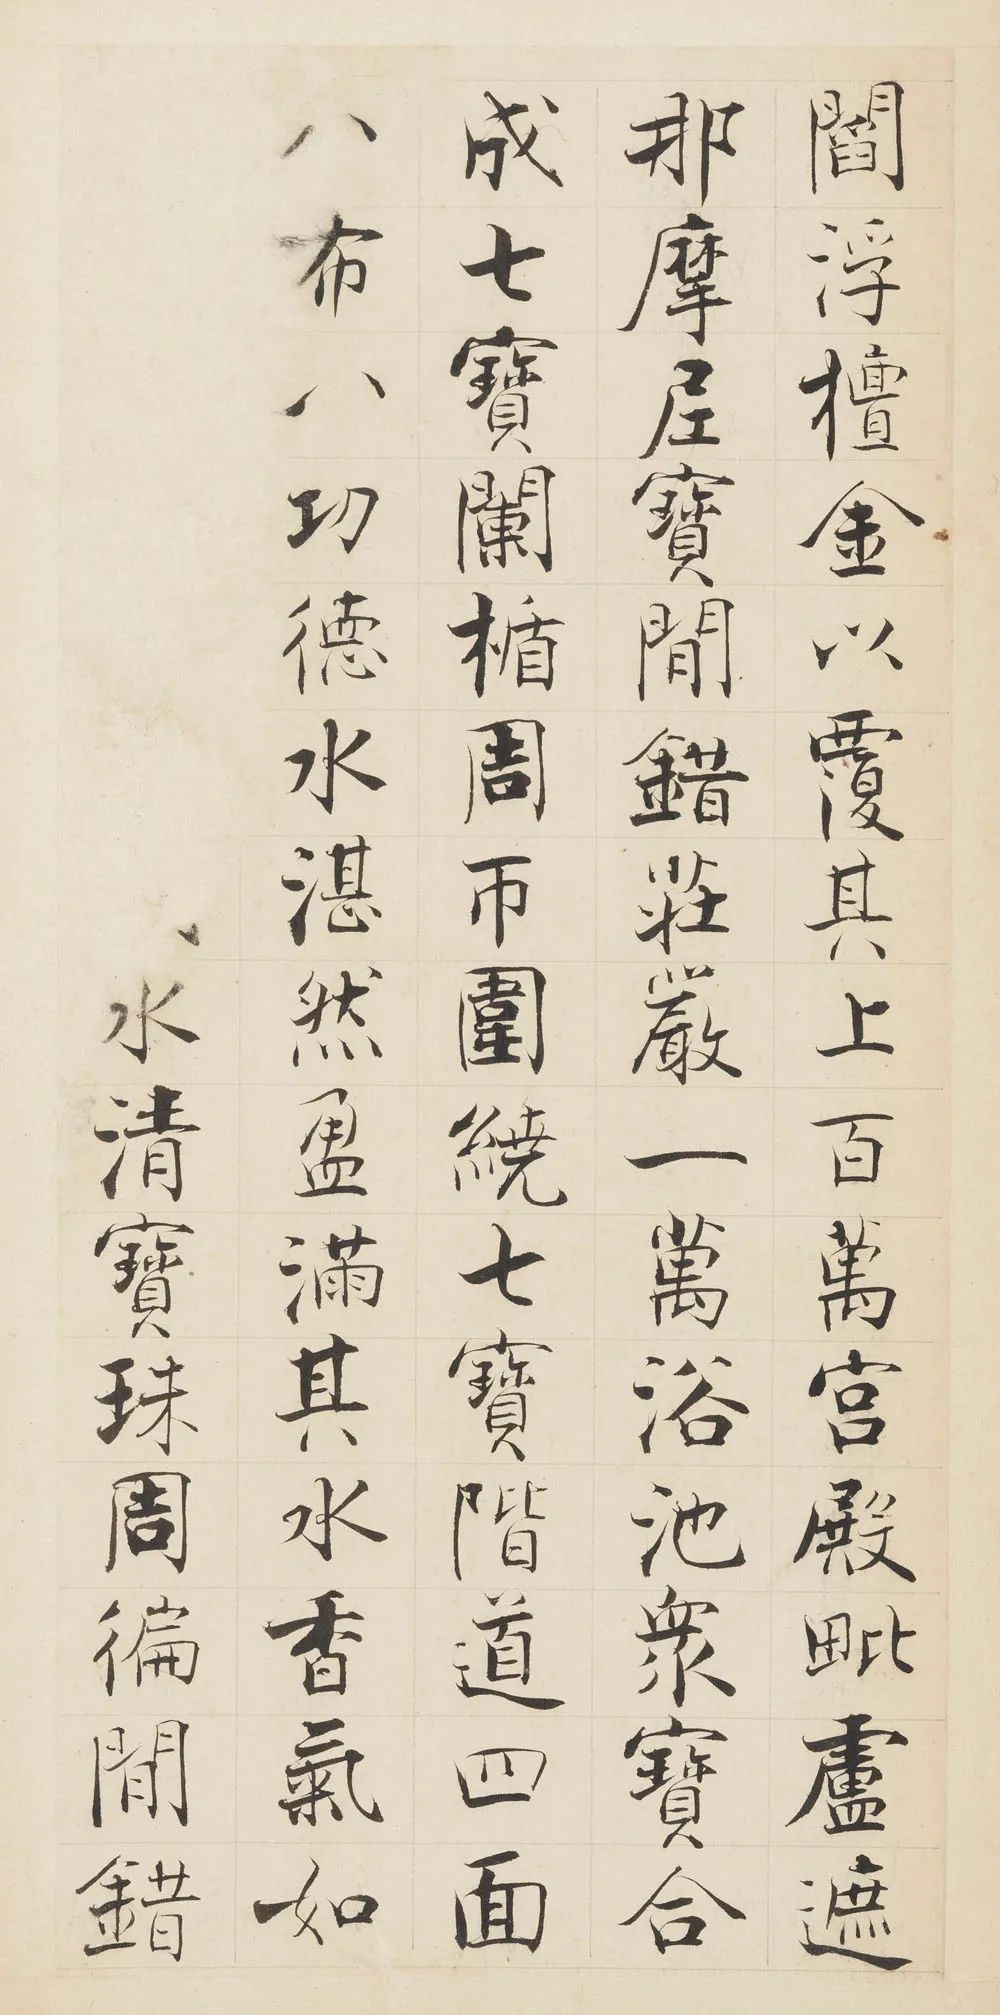 閻浮檀金以覆其上百萬宮殿毗盧遮
那摩尼寶閒錯莊嚴一萬浴池衆寶合
成七寶闌楯周帀圍繞七寶階道四面
八布八功德水湛然盈滿其水香氣如
水清寶珠周徧閒錯